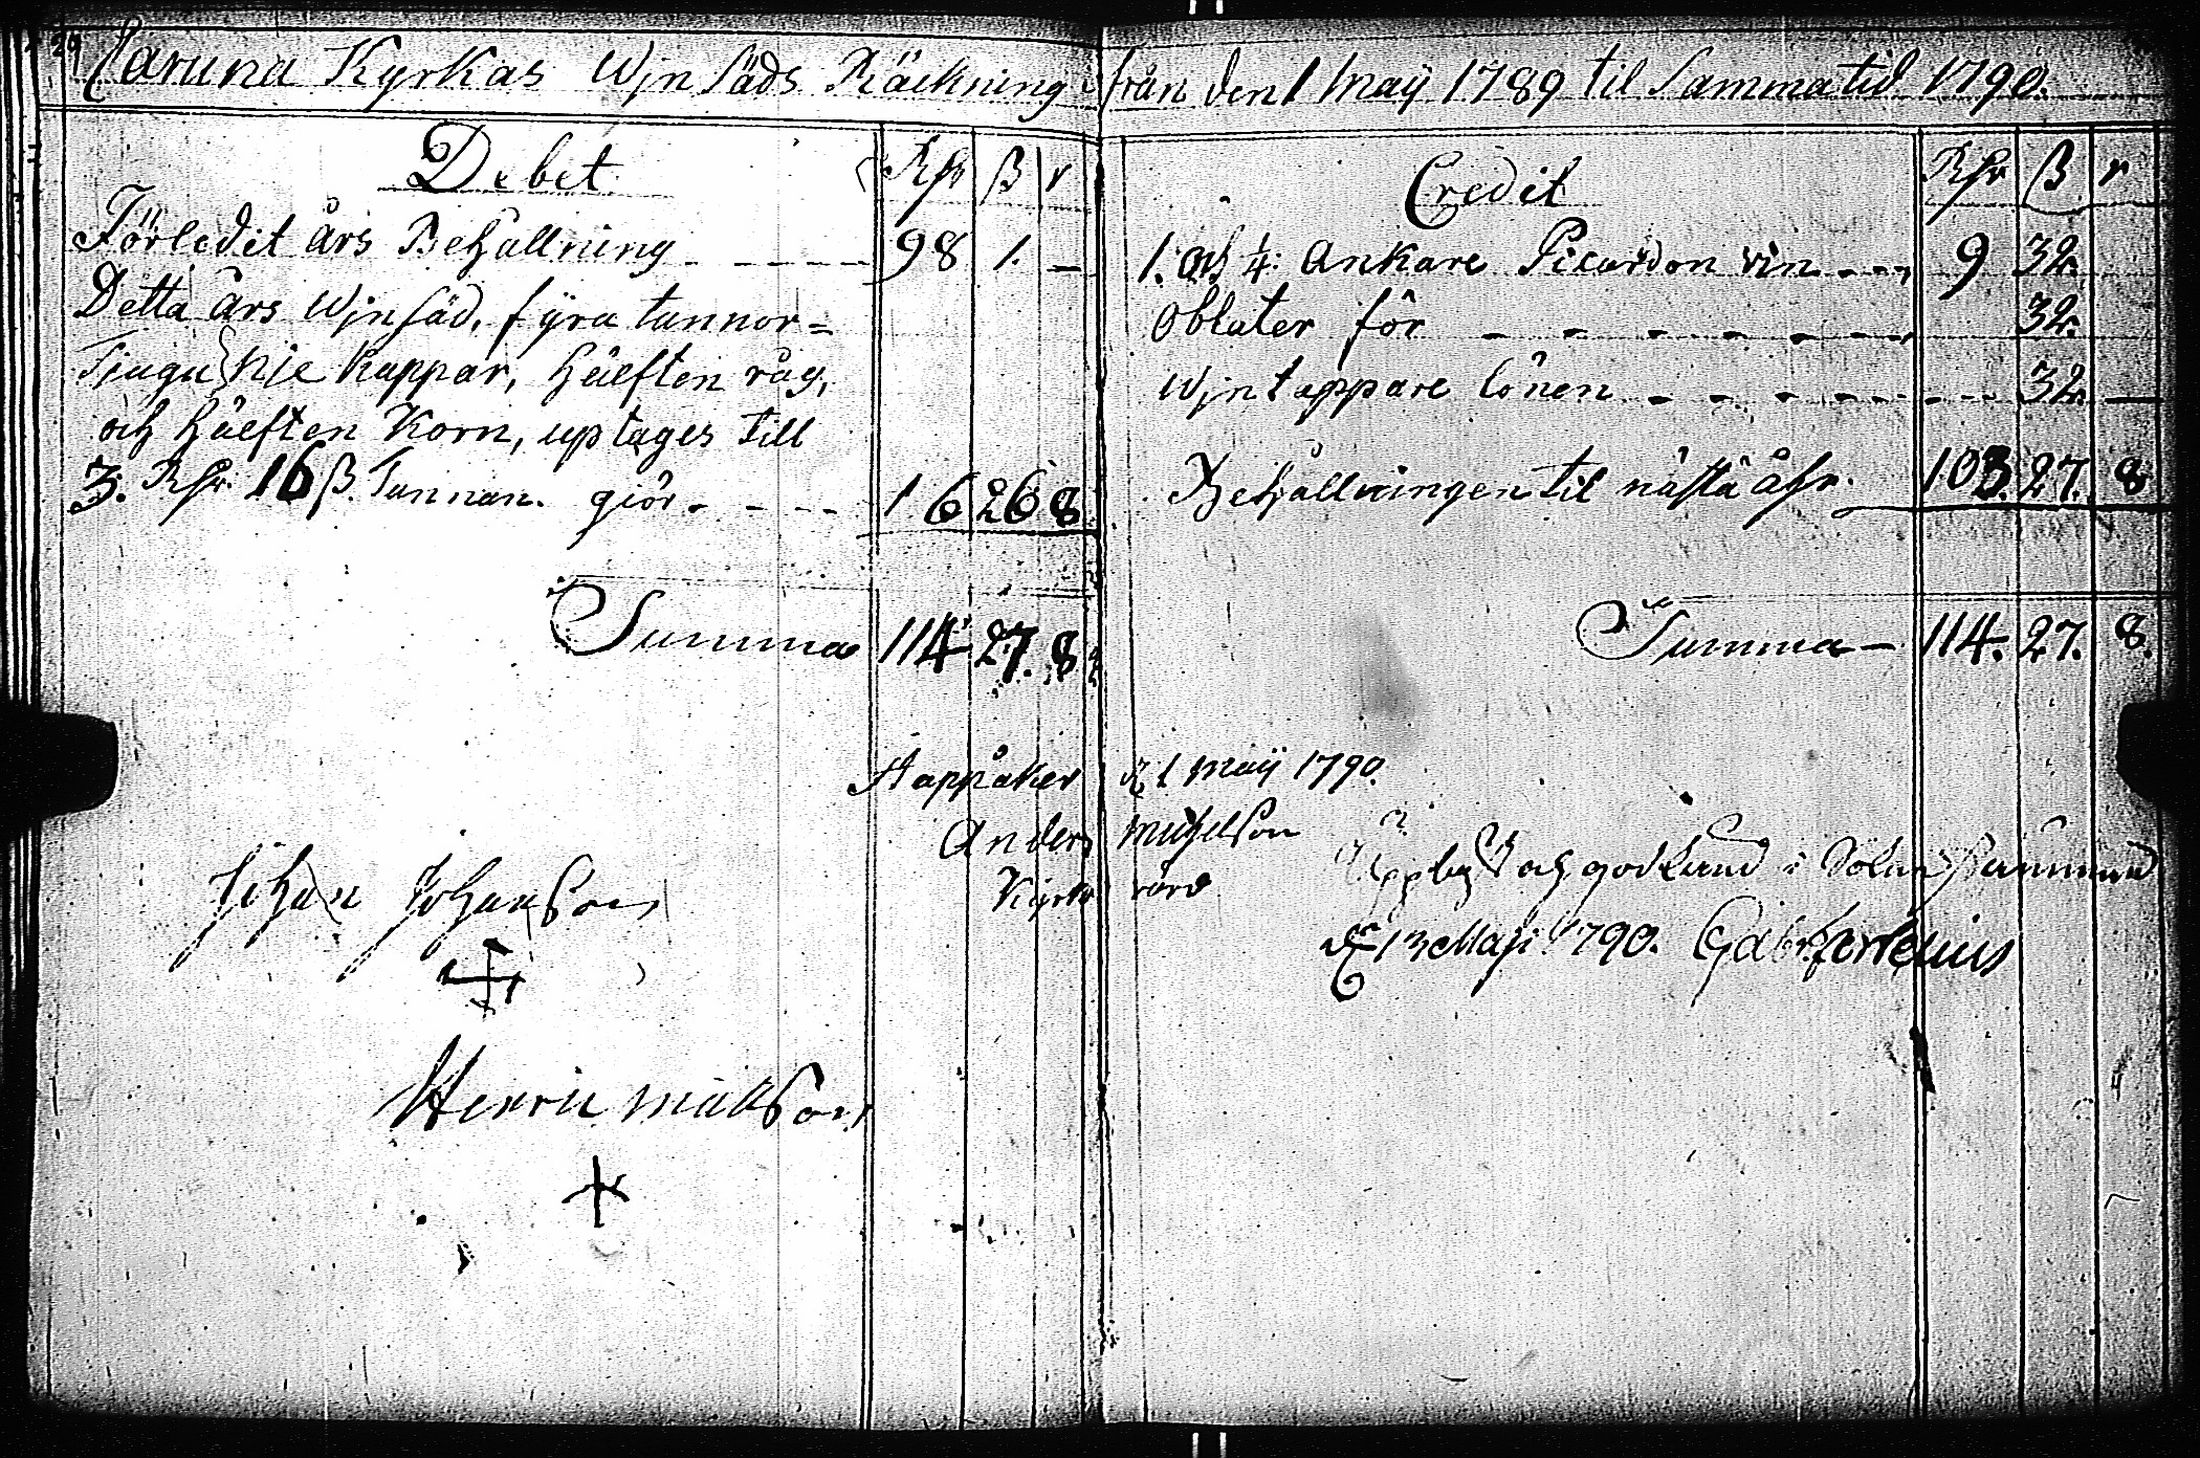 29
Caruna Kyrkas Wjn säds Räckning ifrån den 1 Maÿ 1789 til samma tid 1790.
Debet Rdr ß r
Förledit års Behållning 98 1. —
Detta års Wjnsäd, fÿra tunnor=
Tjugu nie kappar, hälften råg,
och hälften Korn, uptages till
3. Rdr 16 ß. Tunnan. giör 16 26 8
Summa 114 27. 8
Credit Rdr ß r
1. och 1/4: Ankare Picardon vin 9 32.
Oblater för 32.
Wjntappare lönen 32. —
Behållningen til nästa åhr. 103. 27. 8
Summa — 114. 27. 8.
Stappåker d. 1 Maÿ 1790.
Anders Michelson
Kyrko värd
Johan Johanson
Henric Matsson
och godkänd i
d. 13 Maji 1790. Gabr. Fortelius